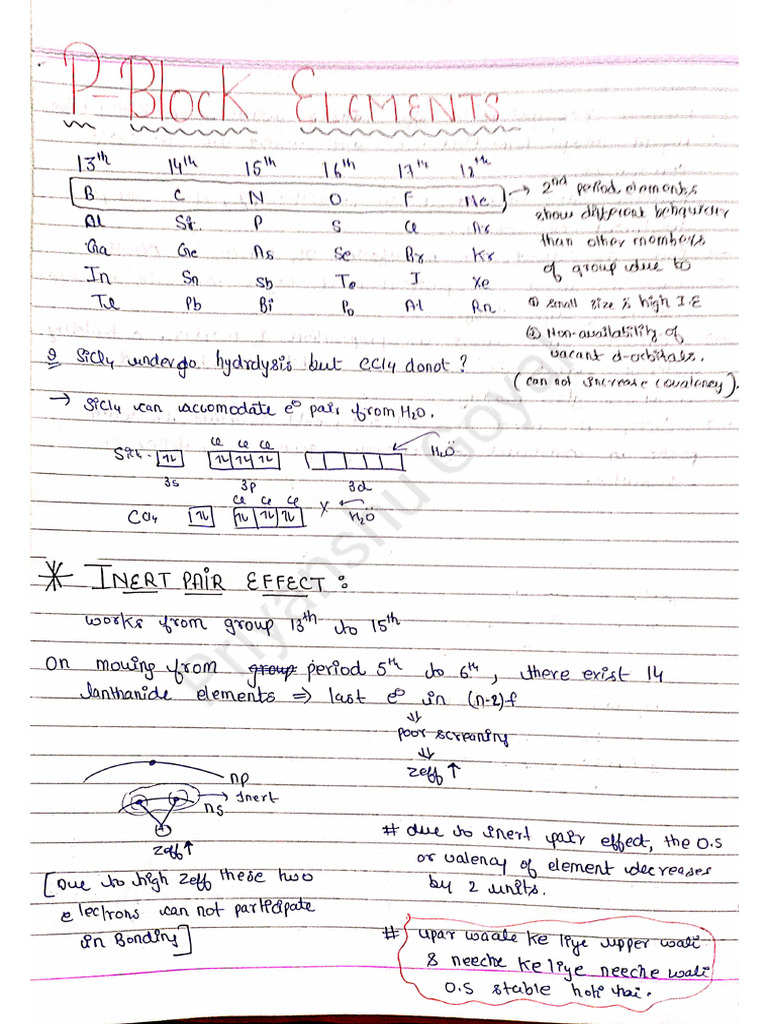 P-BLOCK ELEMENTS
13th 14th 15th 16th 17th 18th
B C N O F Ne → 2nd period elements
Al Si P S Cl Ar show different behaviour
Ga Ge As Se Br Kr than other members
In Sn Sb Te I Xe of group due to
Tl Pb Bi Po At Rn ① small size & high I.E
② Non-availability of
vacant d-orbitals.
(can not increase covalency).
Q SiCl4 undergo hydrolysis but CCl4 donot?
→ SiCl4 can accomodate e⊖ pair from H2O.
Cl Cl Cl
SiCl4 - 1L 1L 1L 1L H2Ö
3s 3p 3d
Cl Cl Cl
CCl4 1L 1L 1L 1L X ← H2Ö
* INERT PAIR EFFECT :
works from group 13th to 15th
On moving from group period 5th to 6th, there exist 14
lanthanide elements ⇒ last e⊖ in (n-2)f
⇓
poor screening
⇓
Zeff ↑
np
→ Inert
ns
Zeff ↑
[Due to high Zeff these two
electrons can not participate
in Bonding]
# due to inert pair effect, the O.S
or valency of element decreases
by 2 units.
# upar waale ke liye upper wali
& neeche ke liye neeche wali
O.S stable hoti hai.
Priyanshu Goyal